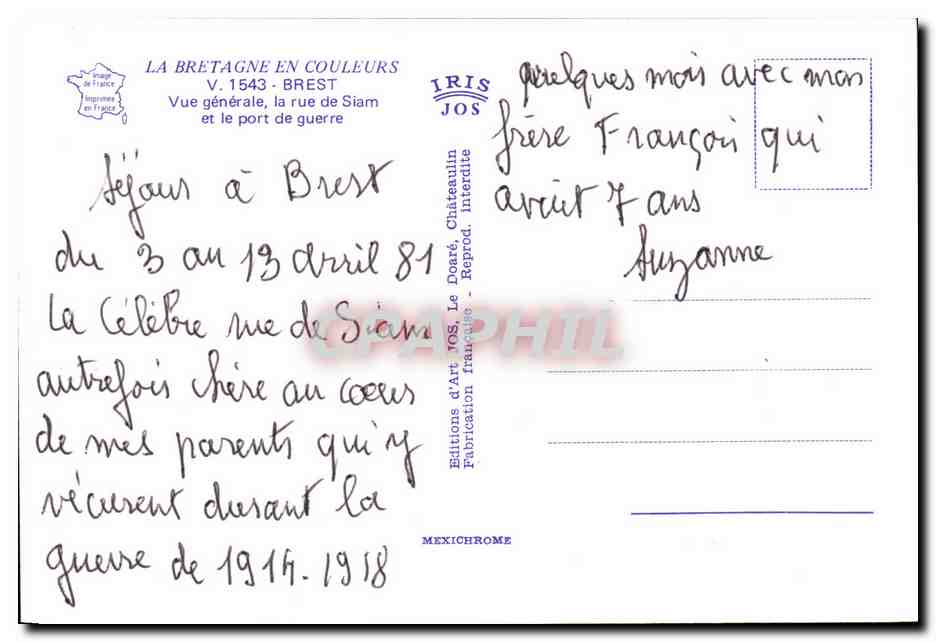 Image
de France
Imprimée
en France
LA BRETAGNE EN COULEURS
V. 1543 - BREST
Vue générale, la rue de Siam
et le port de guerre
Séjour à Brest
du 3 au 13 avril 81
La Célèbre rue de Siam
autrefois chère au coeur
de mes parents qui y
vécurent durant la
guerre de 1914-1918
IRIS
JOS
Editions d'Art JOS, Le Doaré, Châteaulin
Fabrication française - Reprod. interdite
MEXICHROME
quelques mois avec mon
frère François qui
avait 7 ans
Suzanne
CPAPHIL